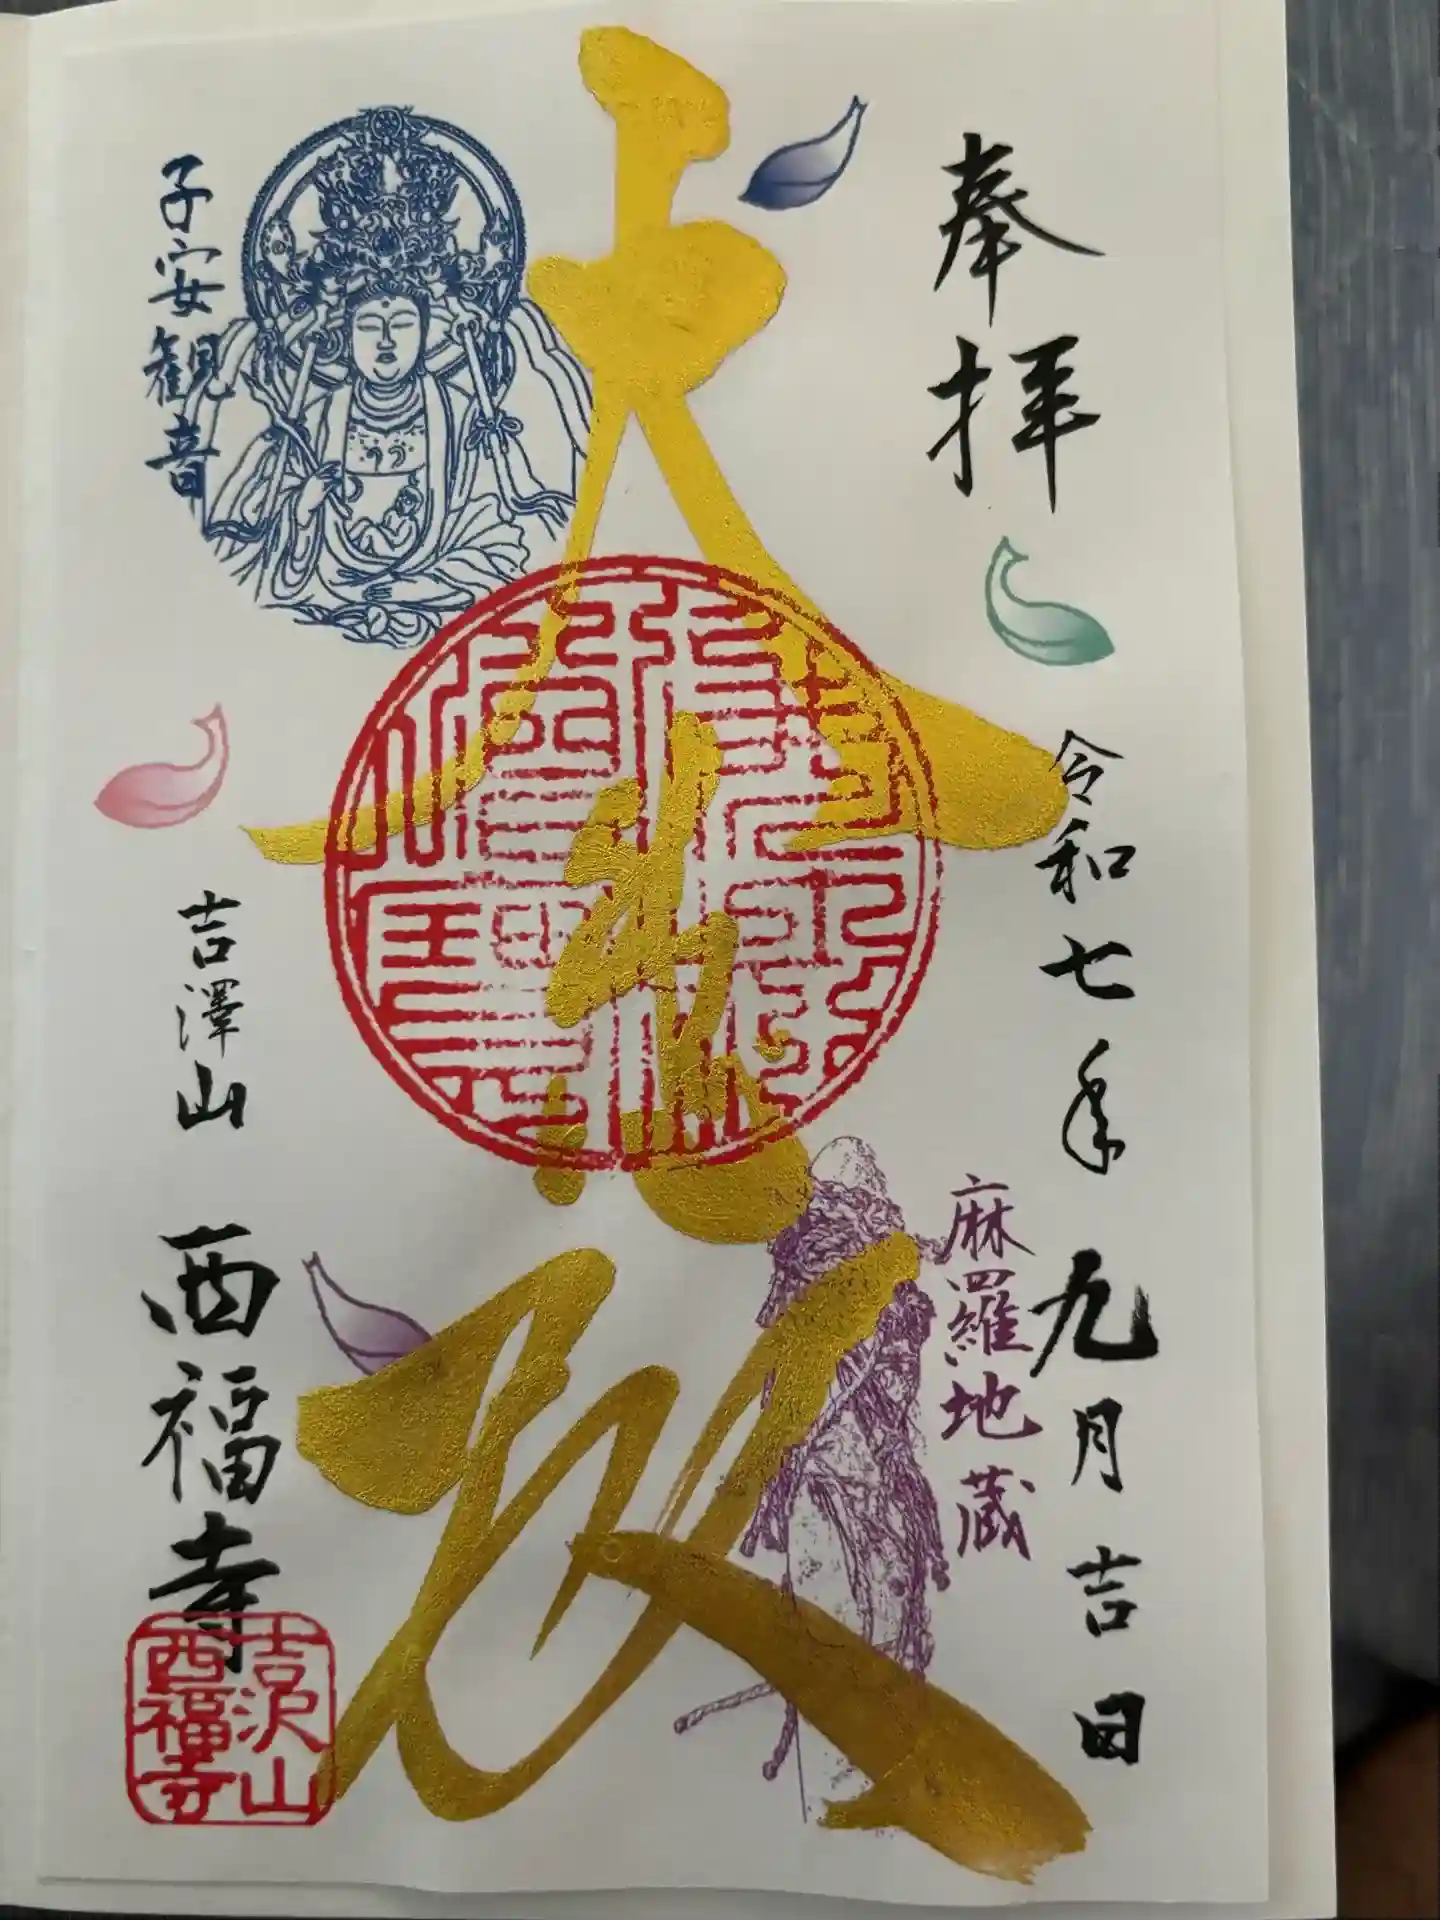 奉拝
令和七年九月吉日
麻羅地蔵
大悲殿
子安観音
吉澤山 西福寺
吉沢山
西福寺